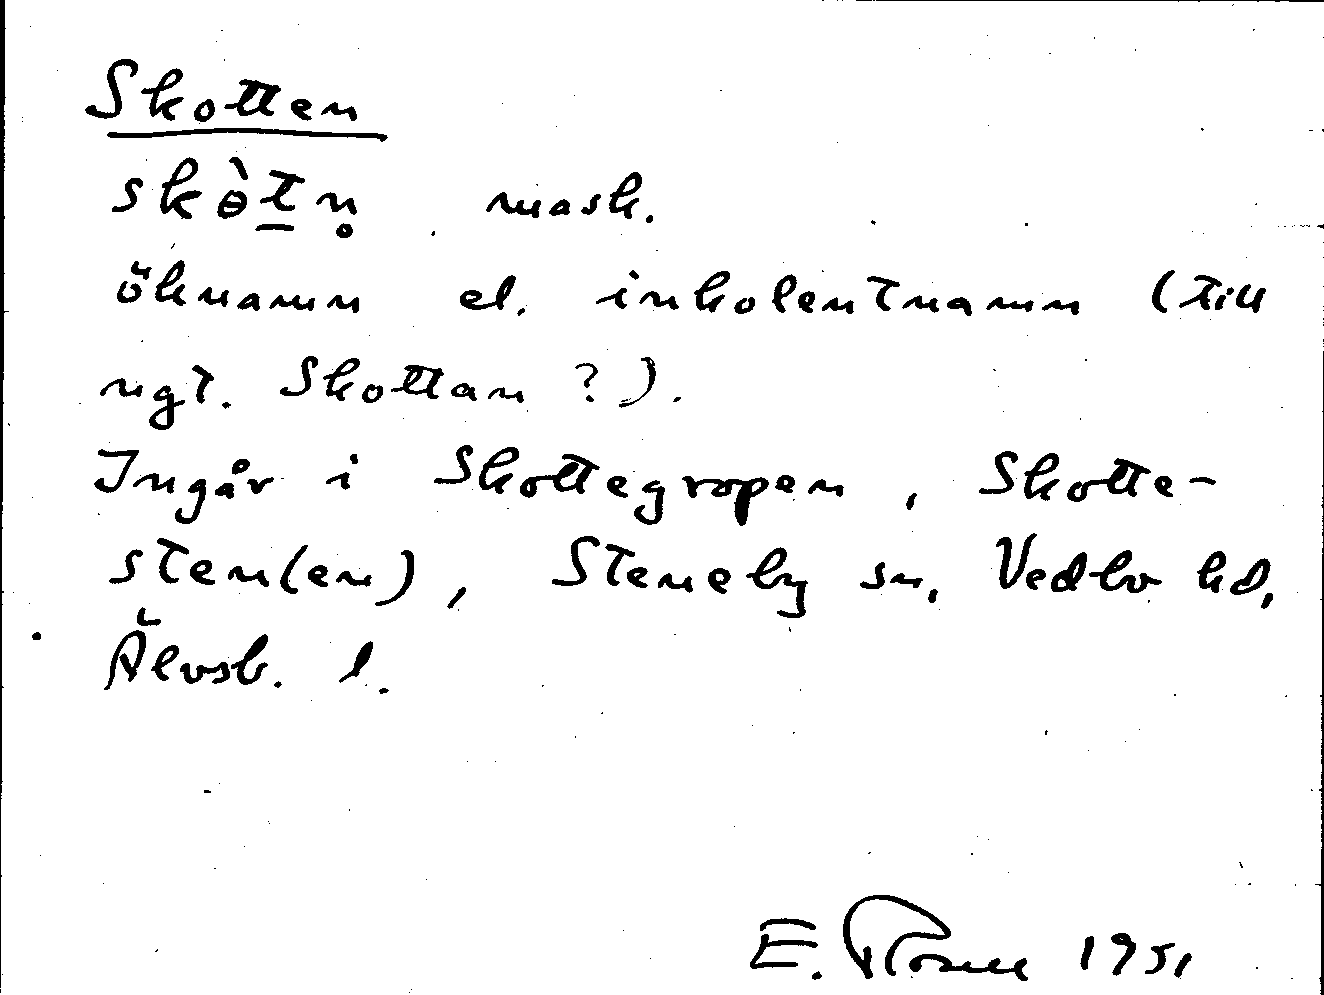 Skotten
skɵ̀t̲n̥ mask.
öknamn el. inkolentnamn (till
ngt. Skottan ?).
Ingår i Skottegropen, Skotte-
sten(en), Steneby sn, Vedbo hd,
Älvsb. l.
E. 1951